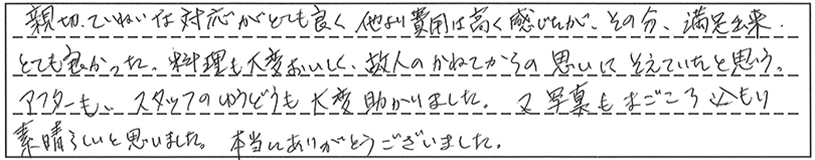 親切、ていねいな対応がとても良く他より費用は高く感じたが、その分、満足出来
とても良かった。料理も大変おいしく、故人のかねてからの思いにそえていたと思う。
アフターも、スタッフのゆうどうも大変助かりました。又写真もまごころ込もり
素晴らしいと思いました。本当にありがとうございました。